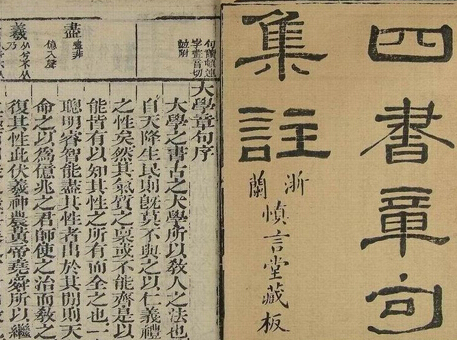 四書章句
集註
浙蘭
慎言堂藏板
大學章句序
大學之書古之大學所以教人之法也
自天降生民則既莫不與之以仁義禮
之性矣然其氣質之稟或不能齊是以
能皆有以知其性之所有而全之也一
聰明睿智能盡其性者出於其間則天
命之以為億兆之君師使之治而教之
復其性此伏羲神農黃帝堯舜所以繼
盡
羲